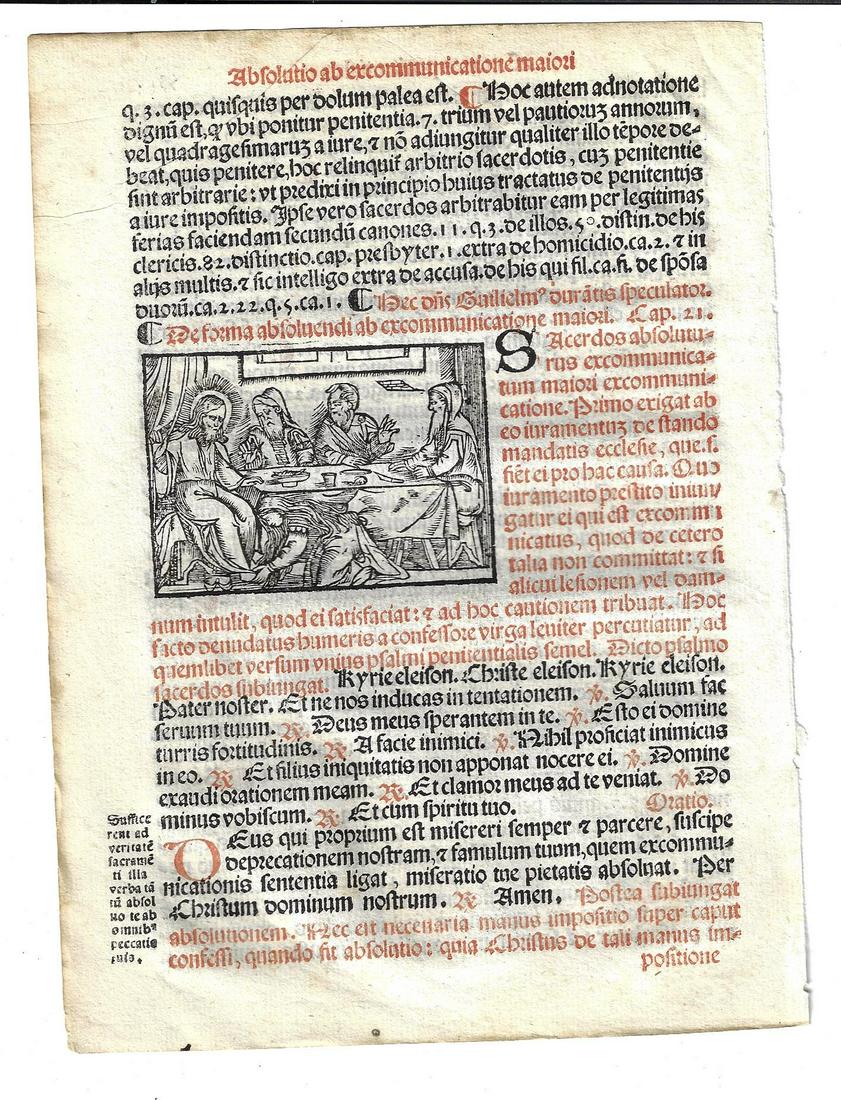 Absolutio ab excommunicatione maiori
q. 3. cap. quisquis per dolum palea est. ¶ Hoc autem adnotatione
dignū est, ꝙ vbi ponitur penitentia. 7. trium vel pautioruꝫ annorum,
vel quadragesimaruꝫ a iure, ⁊ nō adiungitur qualiter illo tēpore de⸗
beat, quis penitere, hoc relinquit̄ arbitrio sacerdotis, cuꝫ penitentie
sint arbitrarie: vt predixi in principio huius tractatus de penitentijs
a iure impositis. Ipse vero sacerdos arbitrabitur eam per legitimas
ferias faciendam secundū canones. 11. q. 3. de illos. 50. distin. de his
clericis. 82. distinctio. cap. presbyter. 1. extra de homicidio. ca. 2. ⁊ in
alijs multis. ⁊ sic intelligo extra de accusa. de his qui fil. ca. fi. de spōsa
duorū. ca. 2. 22. q. 5. ca. 1. ¶ Hec dn̄s Guilielmꝰ durātis speculator.
¶ De forma absoluendi ab excommunicatione maiori. Cap. 21.
SAcerdos absolutu⸗
rus excommunica⸗
tum maiori excommuni⸗
catione. Primo exigat ab
eo iuramentuꝫ de stando
mandatis ecclesie, que. s.
fiēt ei pro hac causa. Quo
iuramento prestito iniun⸗
gatur ei qui est excommu
nicatus, quod de cetero
talia non committat: ⁊ si
alicui lesionem vel dam⸗
num intulit, quod ei satisfaciat: ⁊ ad hoc cautionem tribuat. Hoc
facto denudatus humeris a confessore virga leniter percutiatur, ad
quemlibet versum vnius psalmi penitentialis semel. Dicto psalmo
sacerdos subiungat. Kyrie eleison. Christe eleison. Kyrie eleison.
Pater noster. Et ne nos inducas in tentationem. ℣. Saluum fac
seruum tuum. ℟. Deus meus sperantem in te. ℣. Esto ei domine
turris fortitudinis. ℟. A facie inimici. ℣. Nihil proficiat inimicus
in eo. ℟. Et filius iniquitatis non apponat nocere ei. ℣. Domine
exaudi orationem meam. ℟. Et clamor meus ad te veniat. ℣. Do
minus vobiscum. ℟. Et cum spiritu tuo. Oratio.
DEus qui proprium est misereri semper ⁊ parcere, suscipe
deprecationem nostram, ⁊ famulum tuum, quem excommu⸗
nicationis sententia ligat, miseratio tue pietatis absoluat. Per
Christum dominum nostrum. ℟. Amen. Postea subiungat
absolutionem. Nec est necessaria manus impositio super caput
confessi, quando fit absolutio: quia Christus de tali manus im⸗
positione
Suffice
rent ad
veritatē
sacramē
ti illa
verba tā
tū absol
uo te ab
omnibꝰ
peccatis
tuis.